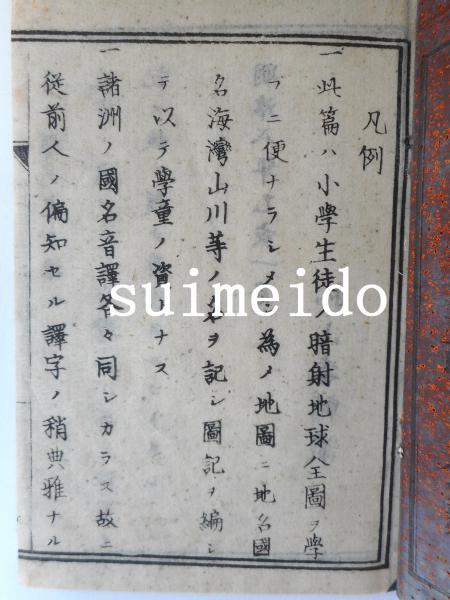 凡例
一此篇ハ小學生徒ノ暗射地球全圖ヲ學
フニ便ナラシメン為メ地圖ニ地名國
名海灣山川等ノ名ヲ記シ圖記ヲ編シ
テ以テ學童ノ資トナス
一諸洲ノ國名音譯各々同シカラス故ニ
従前人ノ偏知セル譯字ノ稍典雅ナル
suimeido